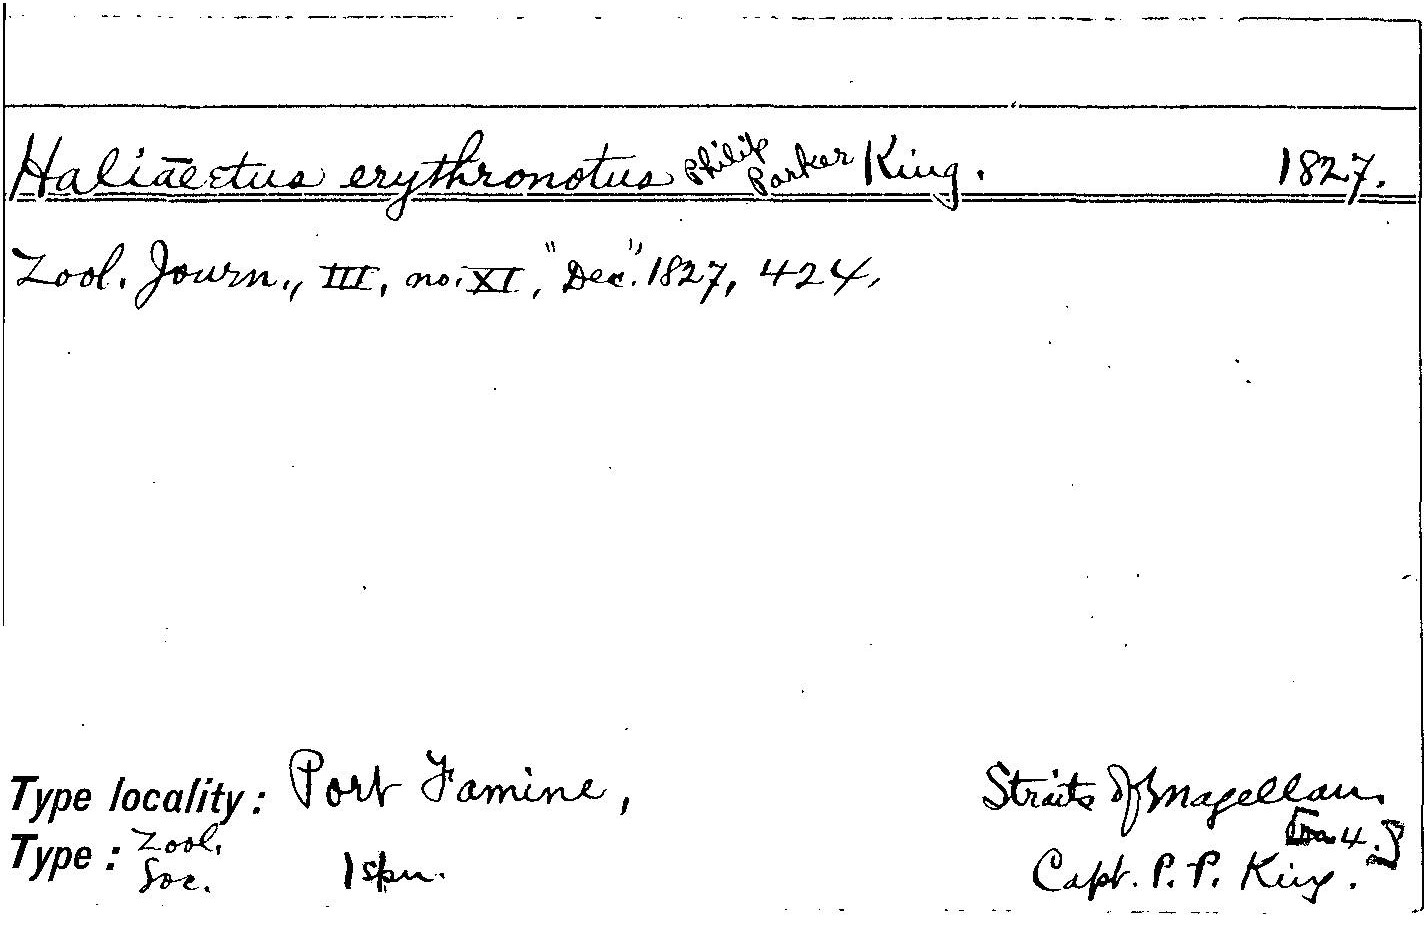 Haliāeetus erythronotus Philip Parker King. 1827.
Zool. Journ., III, no. XI, "Dec". 1827, 424.
Type locality: Port Famine, Straits of Magellan.
4.]
Type: Zool. Soc. 1 spn. Capt. P. P. King.